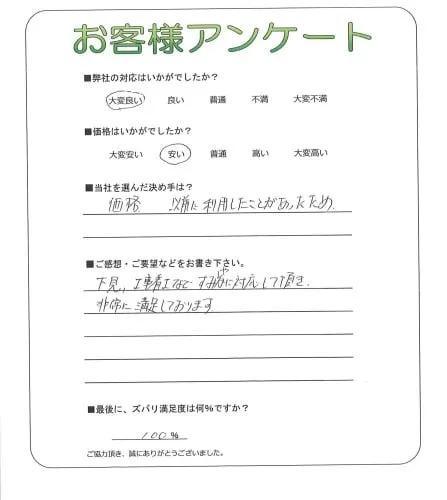 お客様アンケート
■弊社の対応はいかがでしたか?
大変良い 良い 普通 不満 大変不満
■価格はいかがでしたか?
大変安い 安い 普通 高い 大変高い
■当社を選んだ決め手は?
価格 以前に利用したことがあったため.
■ご感想・ご要望などをお書き下さい。
下見、工事着工など すみやかに対応して頂き.
非常に満足しております.
■最後に、ズバリ満足度は何%ですか?
100 %
ご協力頂き、誠にありがとうございました。